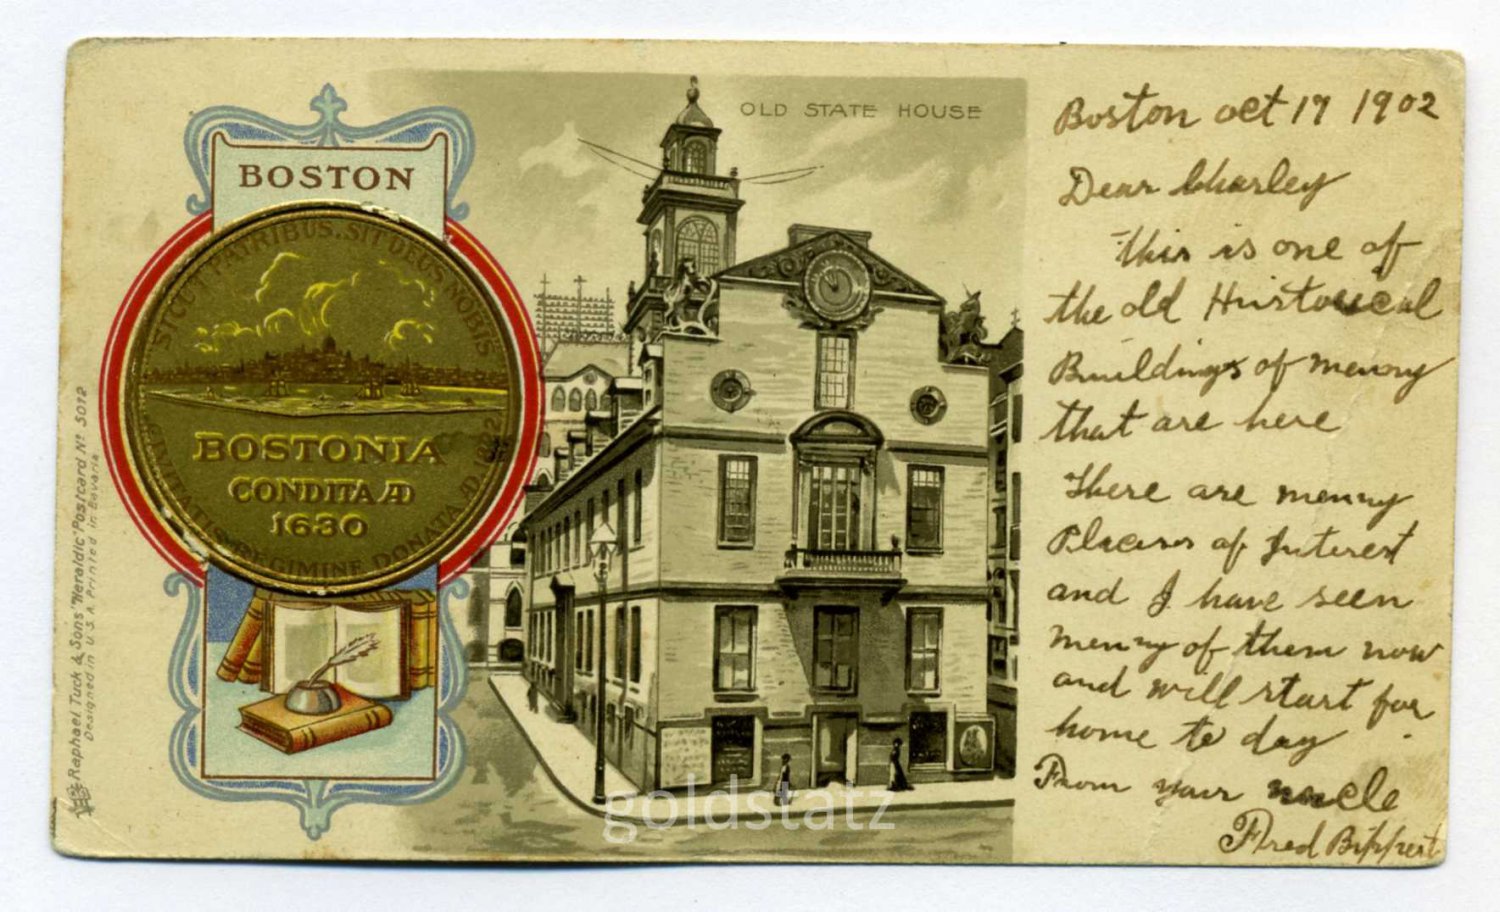 BOSTON
SICUT PATRIBUS. SIT DEUS NOBIS
BOSTONIA
CONDITA AD
1630
CIVITATIS REGIMINE DONATA AD 1822
Raphael Tuck & Sons' "Heraldic" Postcard Nº 5012
Designed in U.S.A. Printed in Bavaria
OLD STATE HOUSE
Boston oct 17 1902
Dear Charley
This is one of
the old Huistorical
Buuildings of menny
that are here
There are menny
Placeses of Interest
and I have seen
menny of them now
and will start for
home to day
From your uncle
Fred Bippert
goldstatz